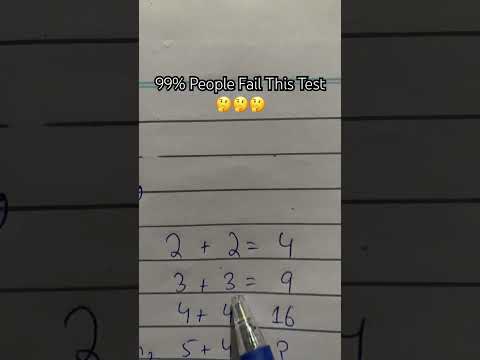 99% People Fail This Test
🤔🤔🤔
2 + 2 = 4
3 + 3 = 9
4 + 4 16
5 + 4 ?